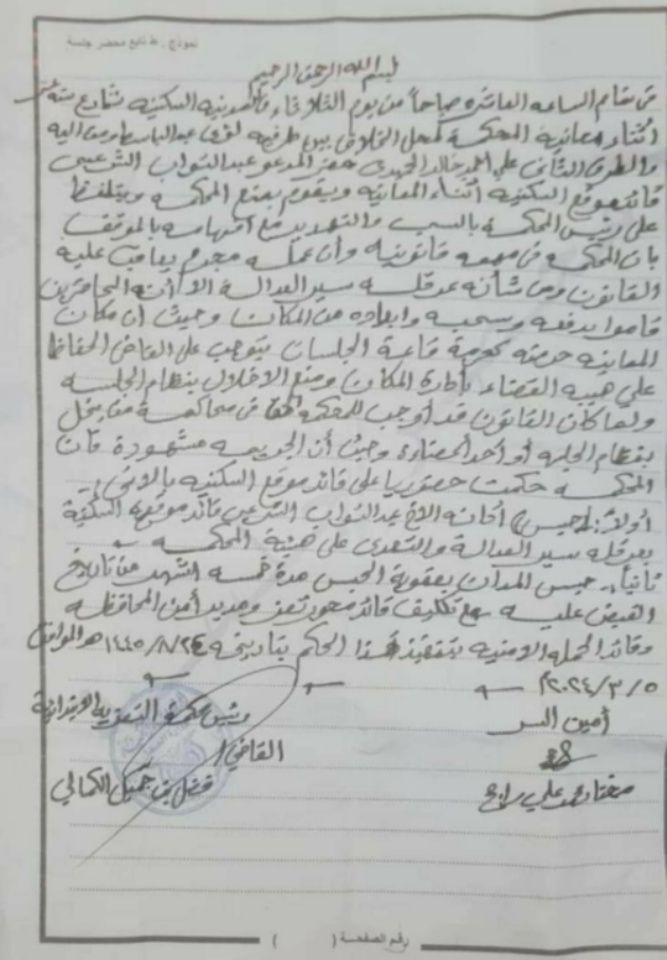 نموذج . ط تابع محضر جلسة
بسم الله الرحمن الرحيم
في تمام الساعه العاشره صباحاً من يوم الثلاثاء وأثناء السكنيه شارع
اثناء معاينة المحكمة لمحل الخلاف بين طرفيه لؤي عبدالباسط ومن اليه
والطرف الثاني علي احمد خالد المجيدي حضر المدعو عبدالتواب الشرعبي
قائد موقع السكنيه أثناء المعاينه ويقوم بمنع المحكمه ويتلفظ
على رئيس المحكمة بالسب والتهديد مع افهامه بالموقف
بان المحكمه في مهمه قانونيه وأن عمله مجرم يعاقب عليه
القانون ومن شأنه عرقلة سير العدالة الا أن الحاضرين
قاموا بدفعه وسحبه وابعاده من المكان وحيث أن مكان
المعاينه حرمته كحرمة قاعة الجلسات يتوجب على القاضي الحفاظ
على هيبه القضاء بأدارة المكان ومنع الاخلال بنظام الجلسه
ولما كان القانون قد أوجب للمحكمه الحق في محاكمة من يخل
بنظام الجلسه أو أحد أعضاءه وحيث أن الجريمه مشهودة فان
المحكمه حكمت حضوريا على قائد موقع السكنيه بالاتي:
أولاً: ادانه الاخ عبدالتواب الشرعبي قائد موقع السكنية
بعرقله سير العدالة والتعدي على هيئة المحكمه
ثانياً: حبس المدان بعقوبة الحبس مدة خمسه اشهر من تاريخ
القبض عليه مع تكليف قائد محور تعز ومدير أمن المحافظه
وقائد الحمله الامنيه بتنفيذ هذا الحكم بتاريخه ٢٤/٨/١٤٤٥هـ الموافق
٥/٣/٢٠٢٤م
أمين السر
رئيس محكمة التعزيه الابتدائية
القاضي/
مختار محمد علي راجح
فضل بن جميل الكمالي
رقم الصفحة ( )